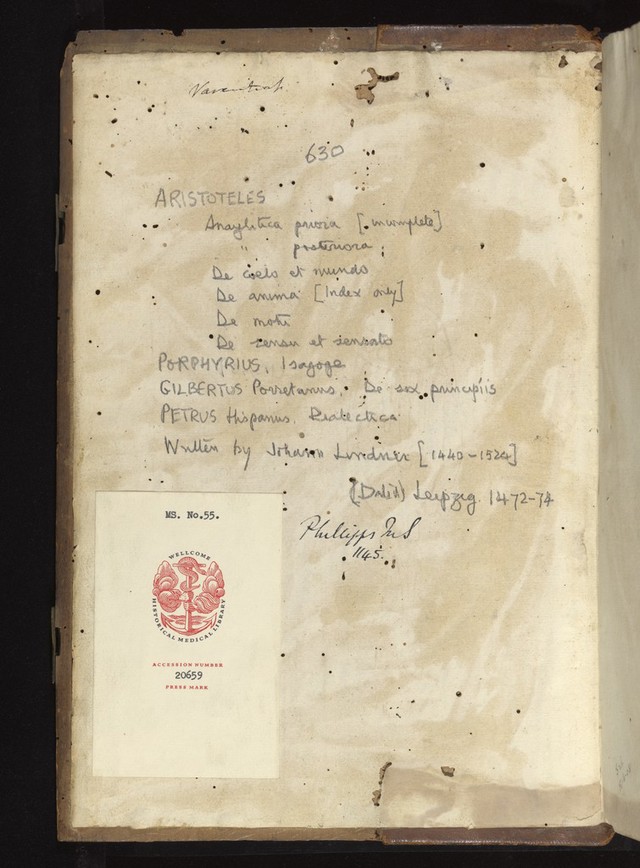 630
ARISTOTELES
Anaylitica priora [incomplete]
" posteriora
De cielo et mundo
De anima [Index only]
De motu
De sensu et sensato
PORPHYRIUS, Isagoge
GILBERTUS Porretanus, De sex principiis
PETRUS Hispanus, Dialectica
Written by Johann Lindner [1440-1524]
(Dated) Leipzig. 1472-74
Phillipps MS
1145.
MS. No.55.
WELLCOME
HISTORICAL MEDICAL LIBRARY
ACCESSION NUMBER
20659
PRESS MARK